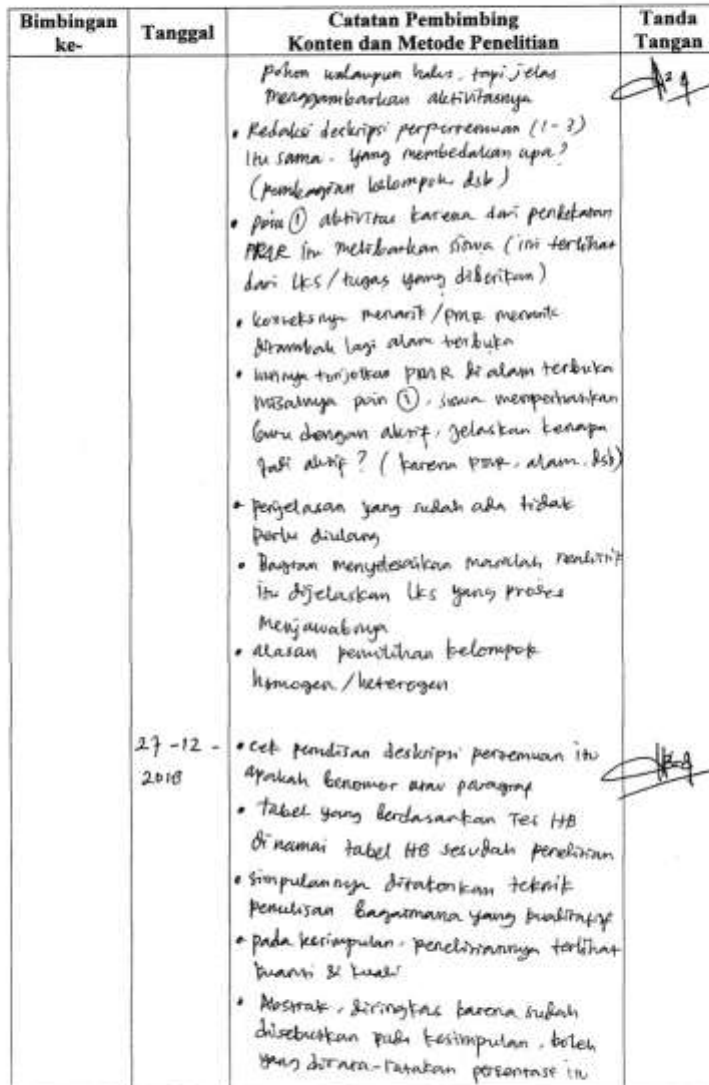 Bimbingan ke-
Tanggal
Catatan Pembimbing
Konten dan Metode Penelitian
Tanda Tangan
pohon walaupun halus, tapi jelas
menggambarkan aktivitasnya
• Redaksi deskripsi perpertemuan (1-3)
itu sama. yang membedakan apa?
(pembagian kelompok dsb)
• poin ① aktivitas karena dari pendekatan
PMR itu melibatkan siswa (ini terlihat
dari LKS/tugas yang diberikan)
• konteksnya menarik/PMR menarik
ditambah lagi alam terbuka
• tonjolkan PMR di alam terbuka
misalnya poin ①, siswa memperhatikan
Guru dengan aktif, jelaskan kenapa
jadi aktif? (karena PMR, alam, dsb)
• penjelasan yang sudah ada tidak
perlu diulang
• Bagian menyelesaikan masalah realistik
itu dijelaskan LKS yang proses
menjawabnya
• alasan pemilihan kelompok
homogen/heterogen
27-12-
2018
• cek penulisan deskripsi pertemuan itu
apakah bernomor atau paragraf
• tabel yang berdasarkan Tes HB
dinamai tabel HB sesudah penelitian
• simpulannya teknik
penulisan Bagaimana yang kualitatif
• pada kesimpulan, penelitiannya terlihat
kuanti & kuali
• Abstrak, diringkas karena sudah
disebutkan pada kesimpulan, boleh
yang dirata-ratakan persentase itu